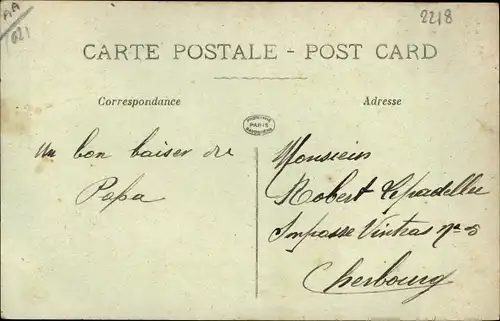 AA
(02)
2218
CARTE POSTALE - POST CARD
Correspondance
Adresse
PARIS
un bon baiser de
Papa
Monsieur
Robert Lepadellec
Impasse Vintras
Cherbourg